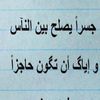 جسراً يصلح بين الناس
و إياك أن تكون حاجزاً